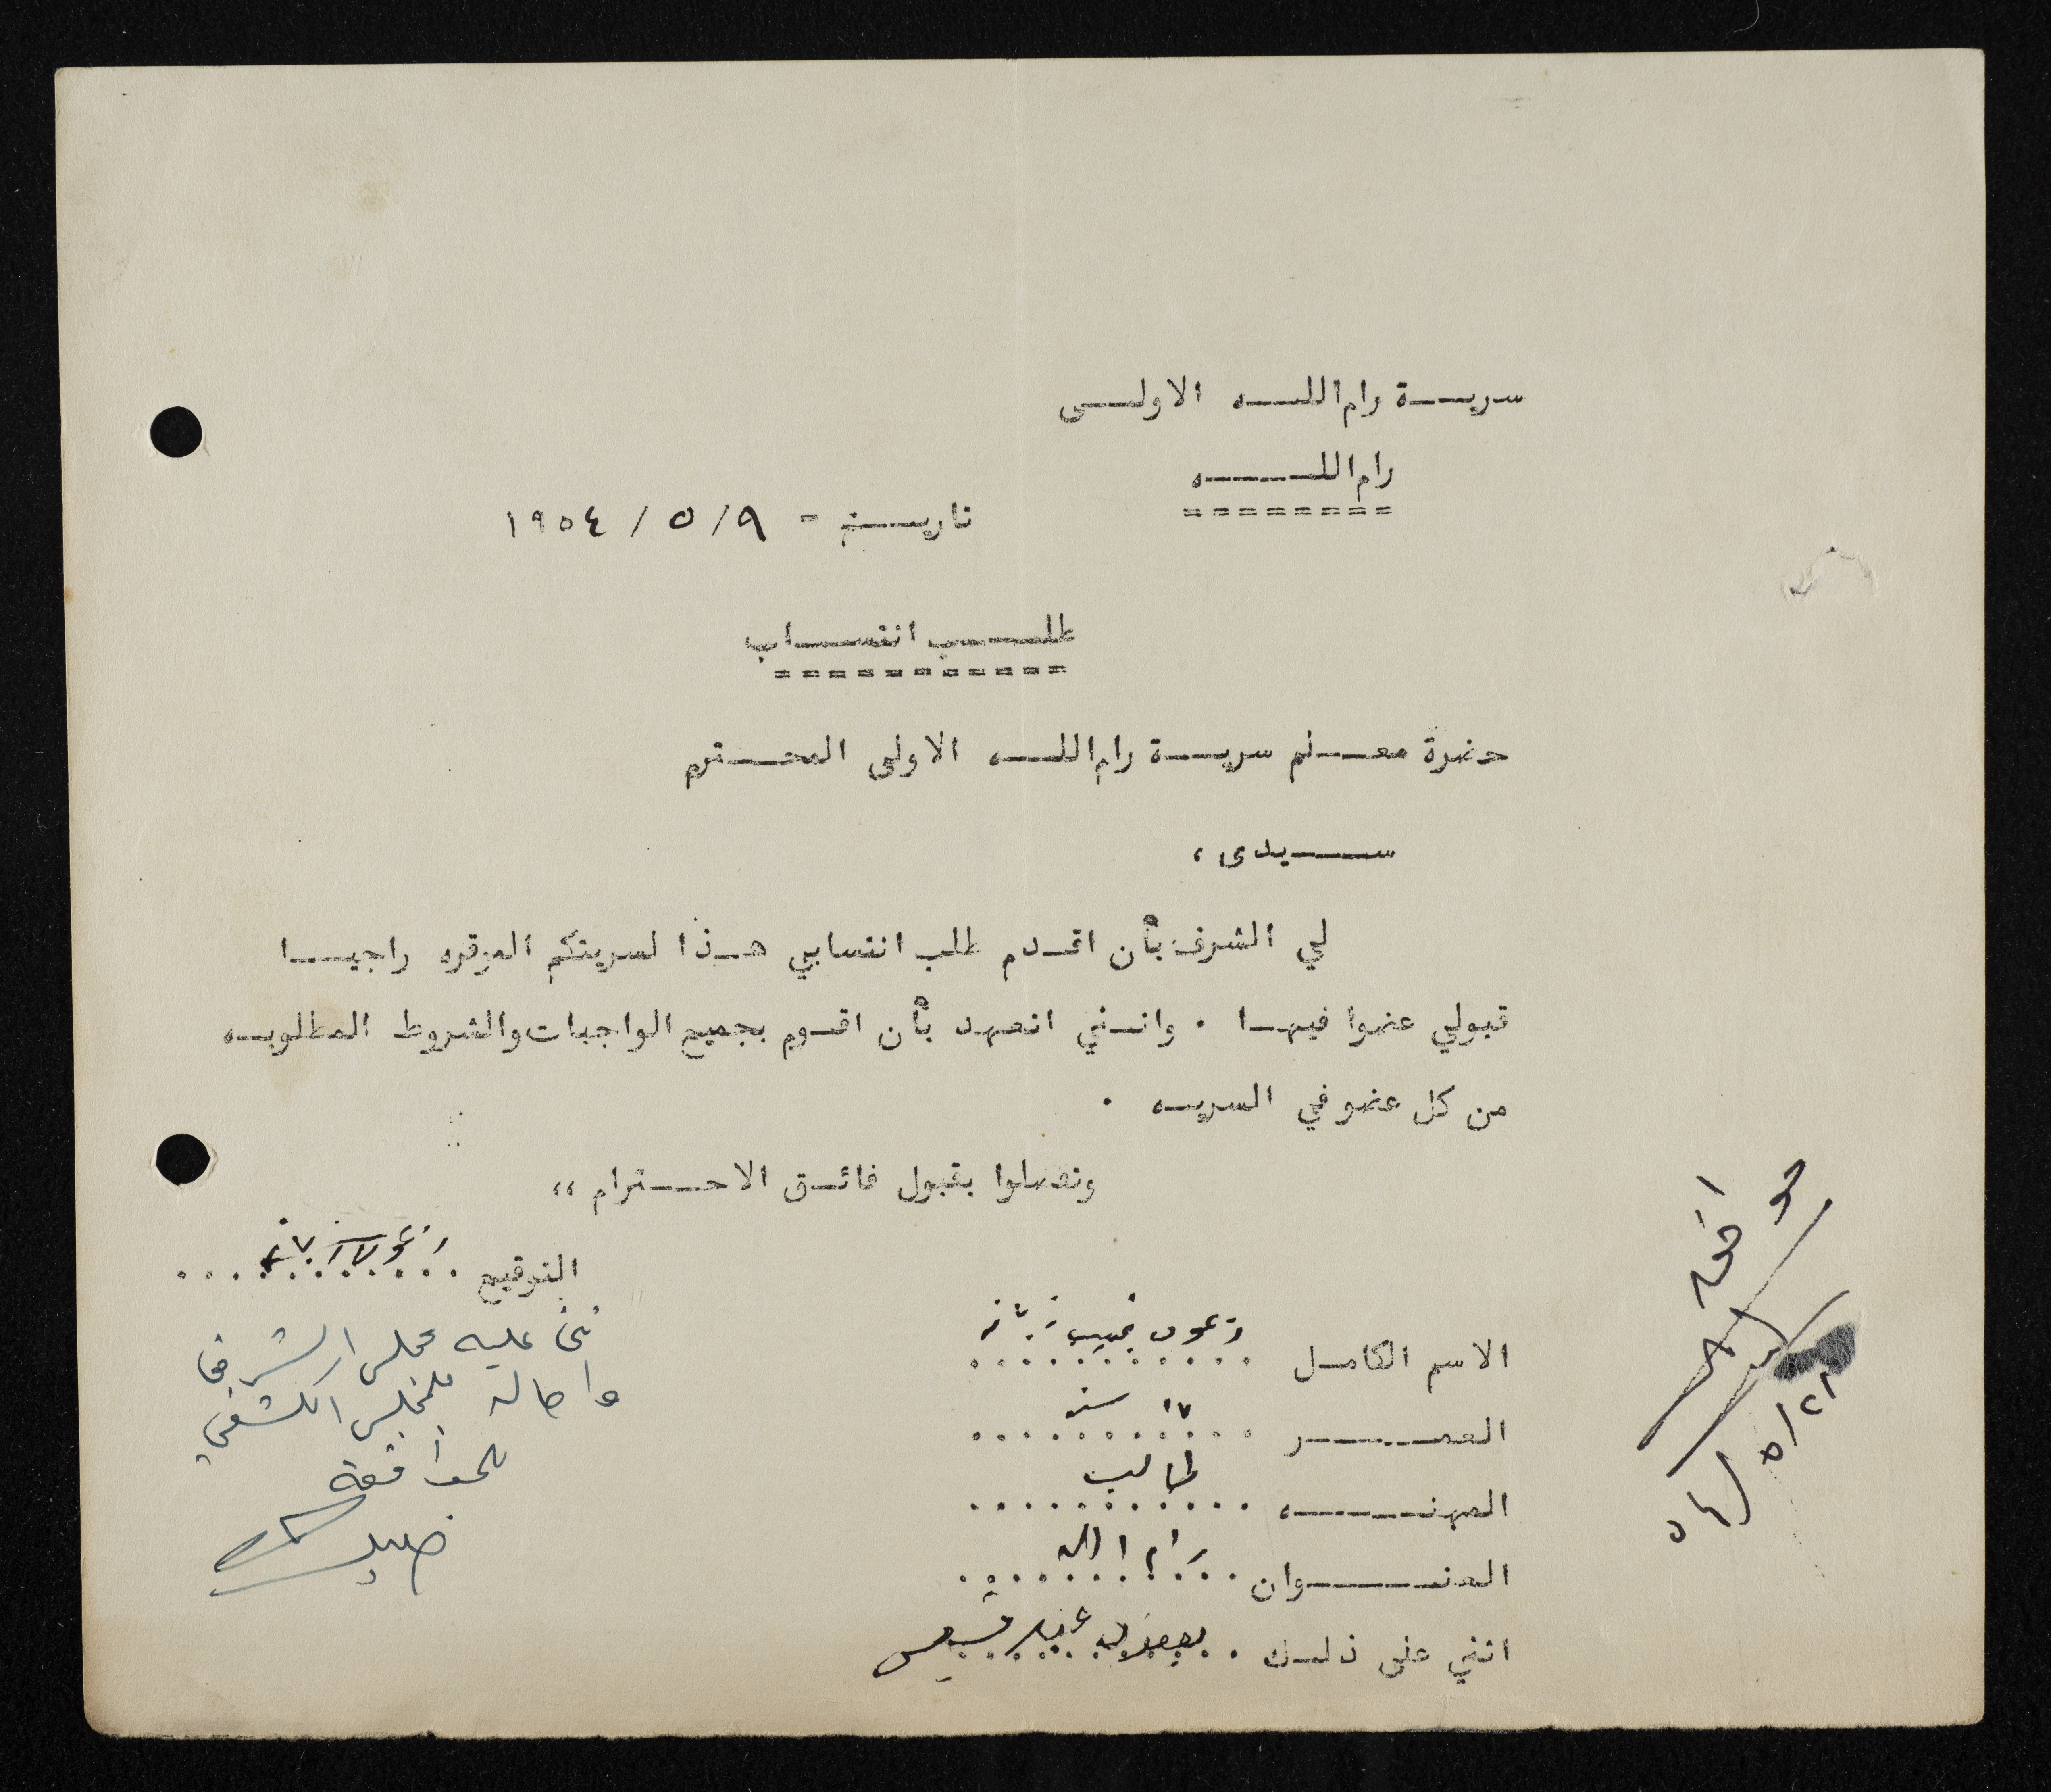 سرية رام الله الاولى
رام الله
========
تاريخ = ٩ / ٥ / ١٩٥٤
طلب انتساب
===========
حضرة معلم سرية رام الله الاولى المحترم
سيدى ،
لي الشرف بأن اقدم طلب انتسابي هذا لسريتكم الموقره راجيا
قبولي عضوا فيها . وانني اتعهد بأن اقوم بجميع الواجبات والشروط المطلوبه
من كل عضو في السريه .
وتفضلوا بقبول فائق الاحترام ،،
التوقيع
الاسم الكامل نجيب
العمر سنه
المهنه طالب
العنوان رام الله
اثني على ذلك
عليه مجلس الشرف
واحاله للمجلس الكشفي
للموافقة
اوافق